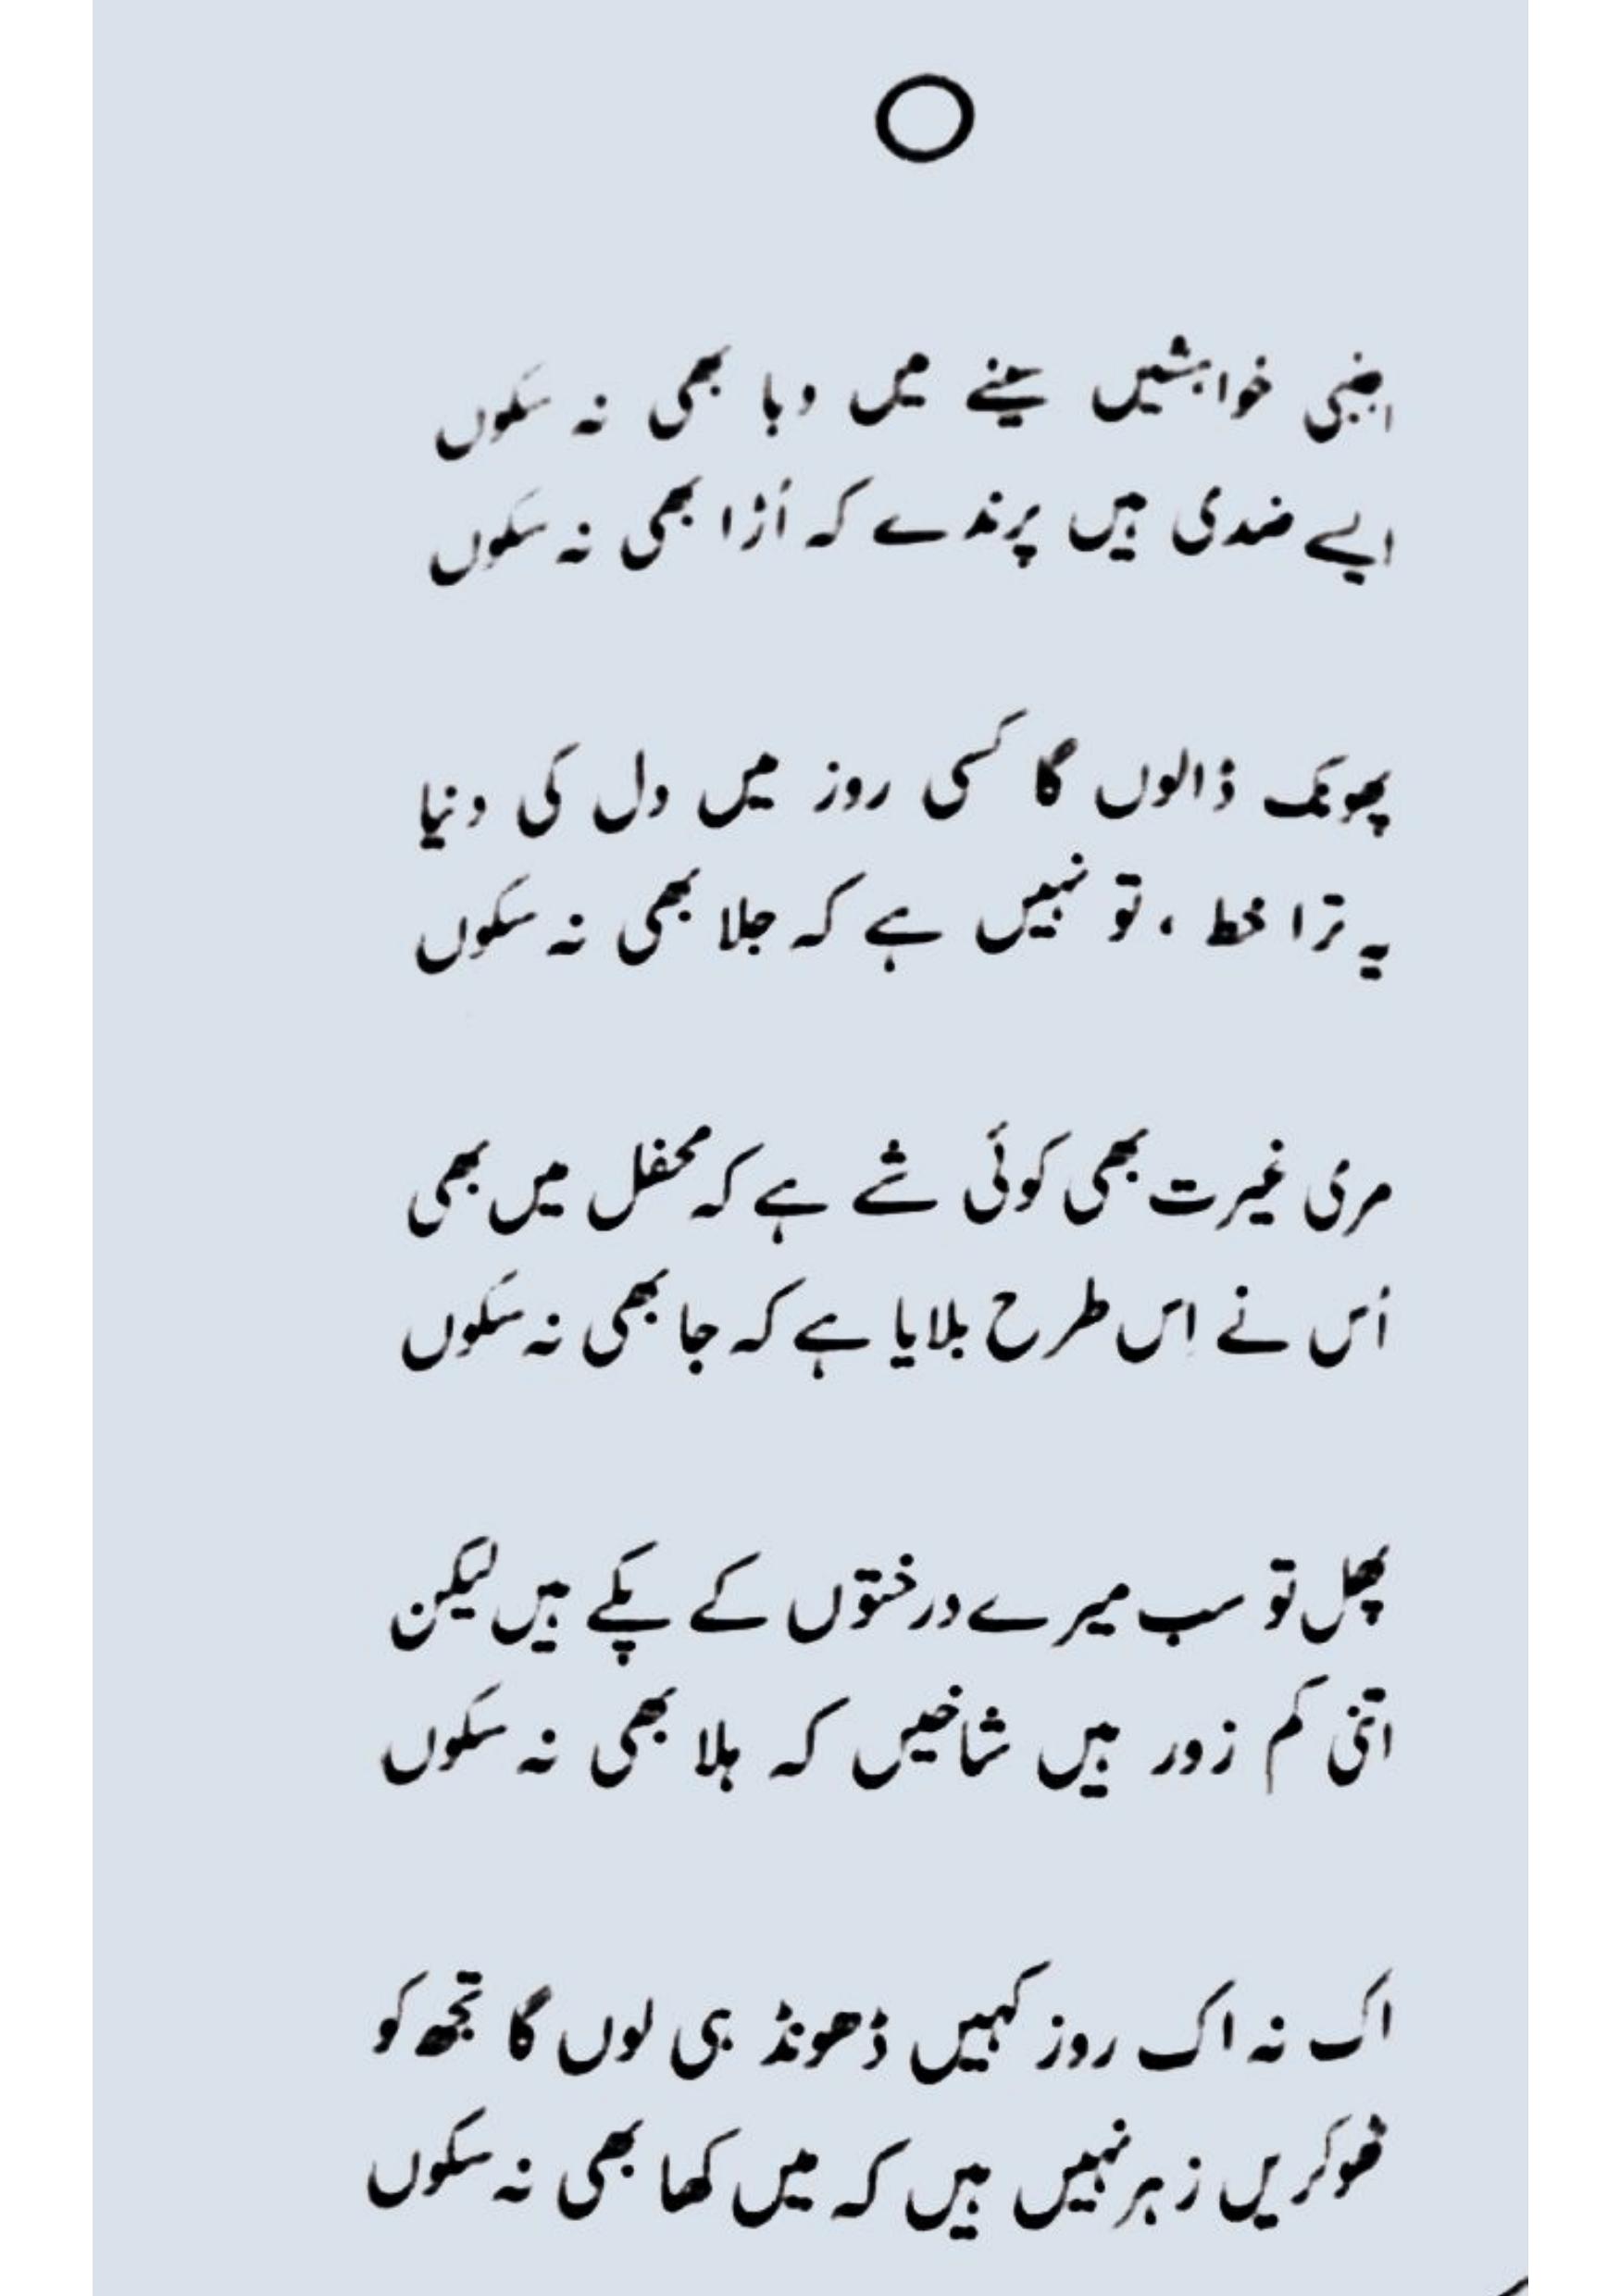 اجنبی خواہشیں سینے میں دبا بھی نہ سکوں
ایسے ضدی ہیں پرندے کہ اُڑا بھی نہ سکوں
پھونک ڈالوں گا کسی روز میں دل کی دنیا
یہ ترا خط ، تو نہیں ہے کہ جلا بھی نہ سکوں
مری غیرت بھی کوئی شے ہے کہ محفل میں بھی
اُس نے اِس طرح بلایا ہے کہ جا بھی نہ سکوں
پھل تو سب میرے درختوں کے پکے ہیں لیکن
اتنی کم زور ہیں شاخیں کہ ہلا بھی نہ سکوں
اک نہ اک روز کہیں ڈھونڈ ہی لوں گا تجھ کو
ٹھوکریں زہر نہیں ہیں کہ میں کھا بھی نہ سکوں